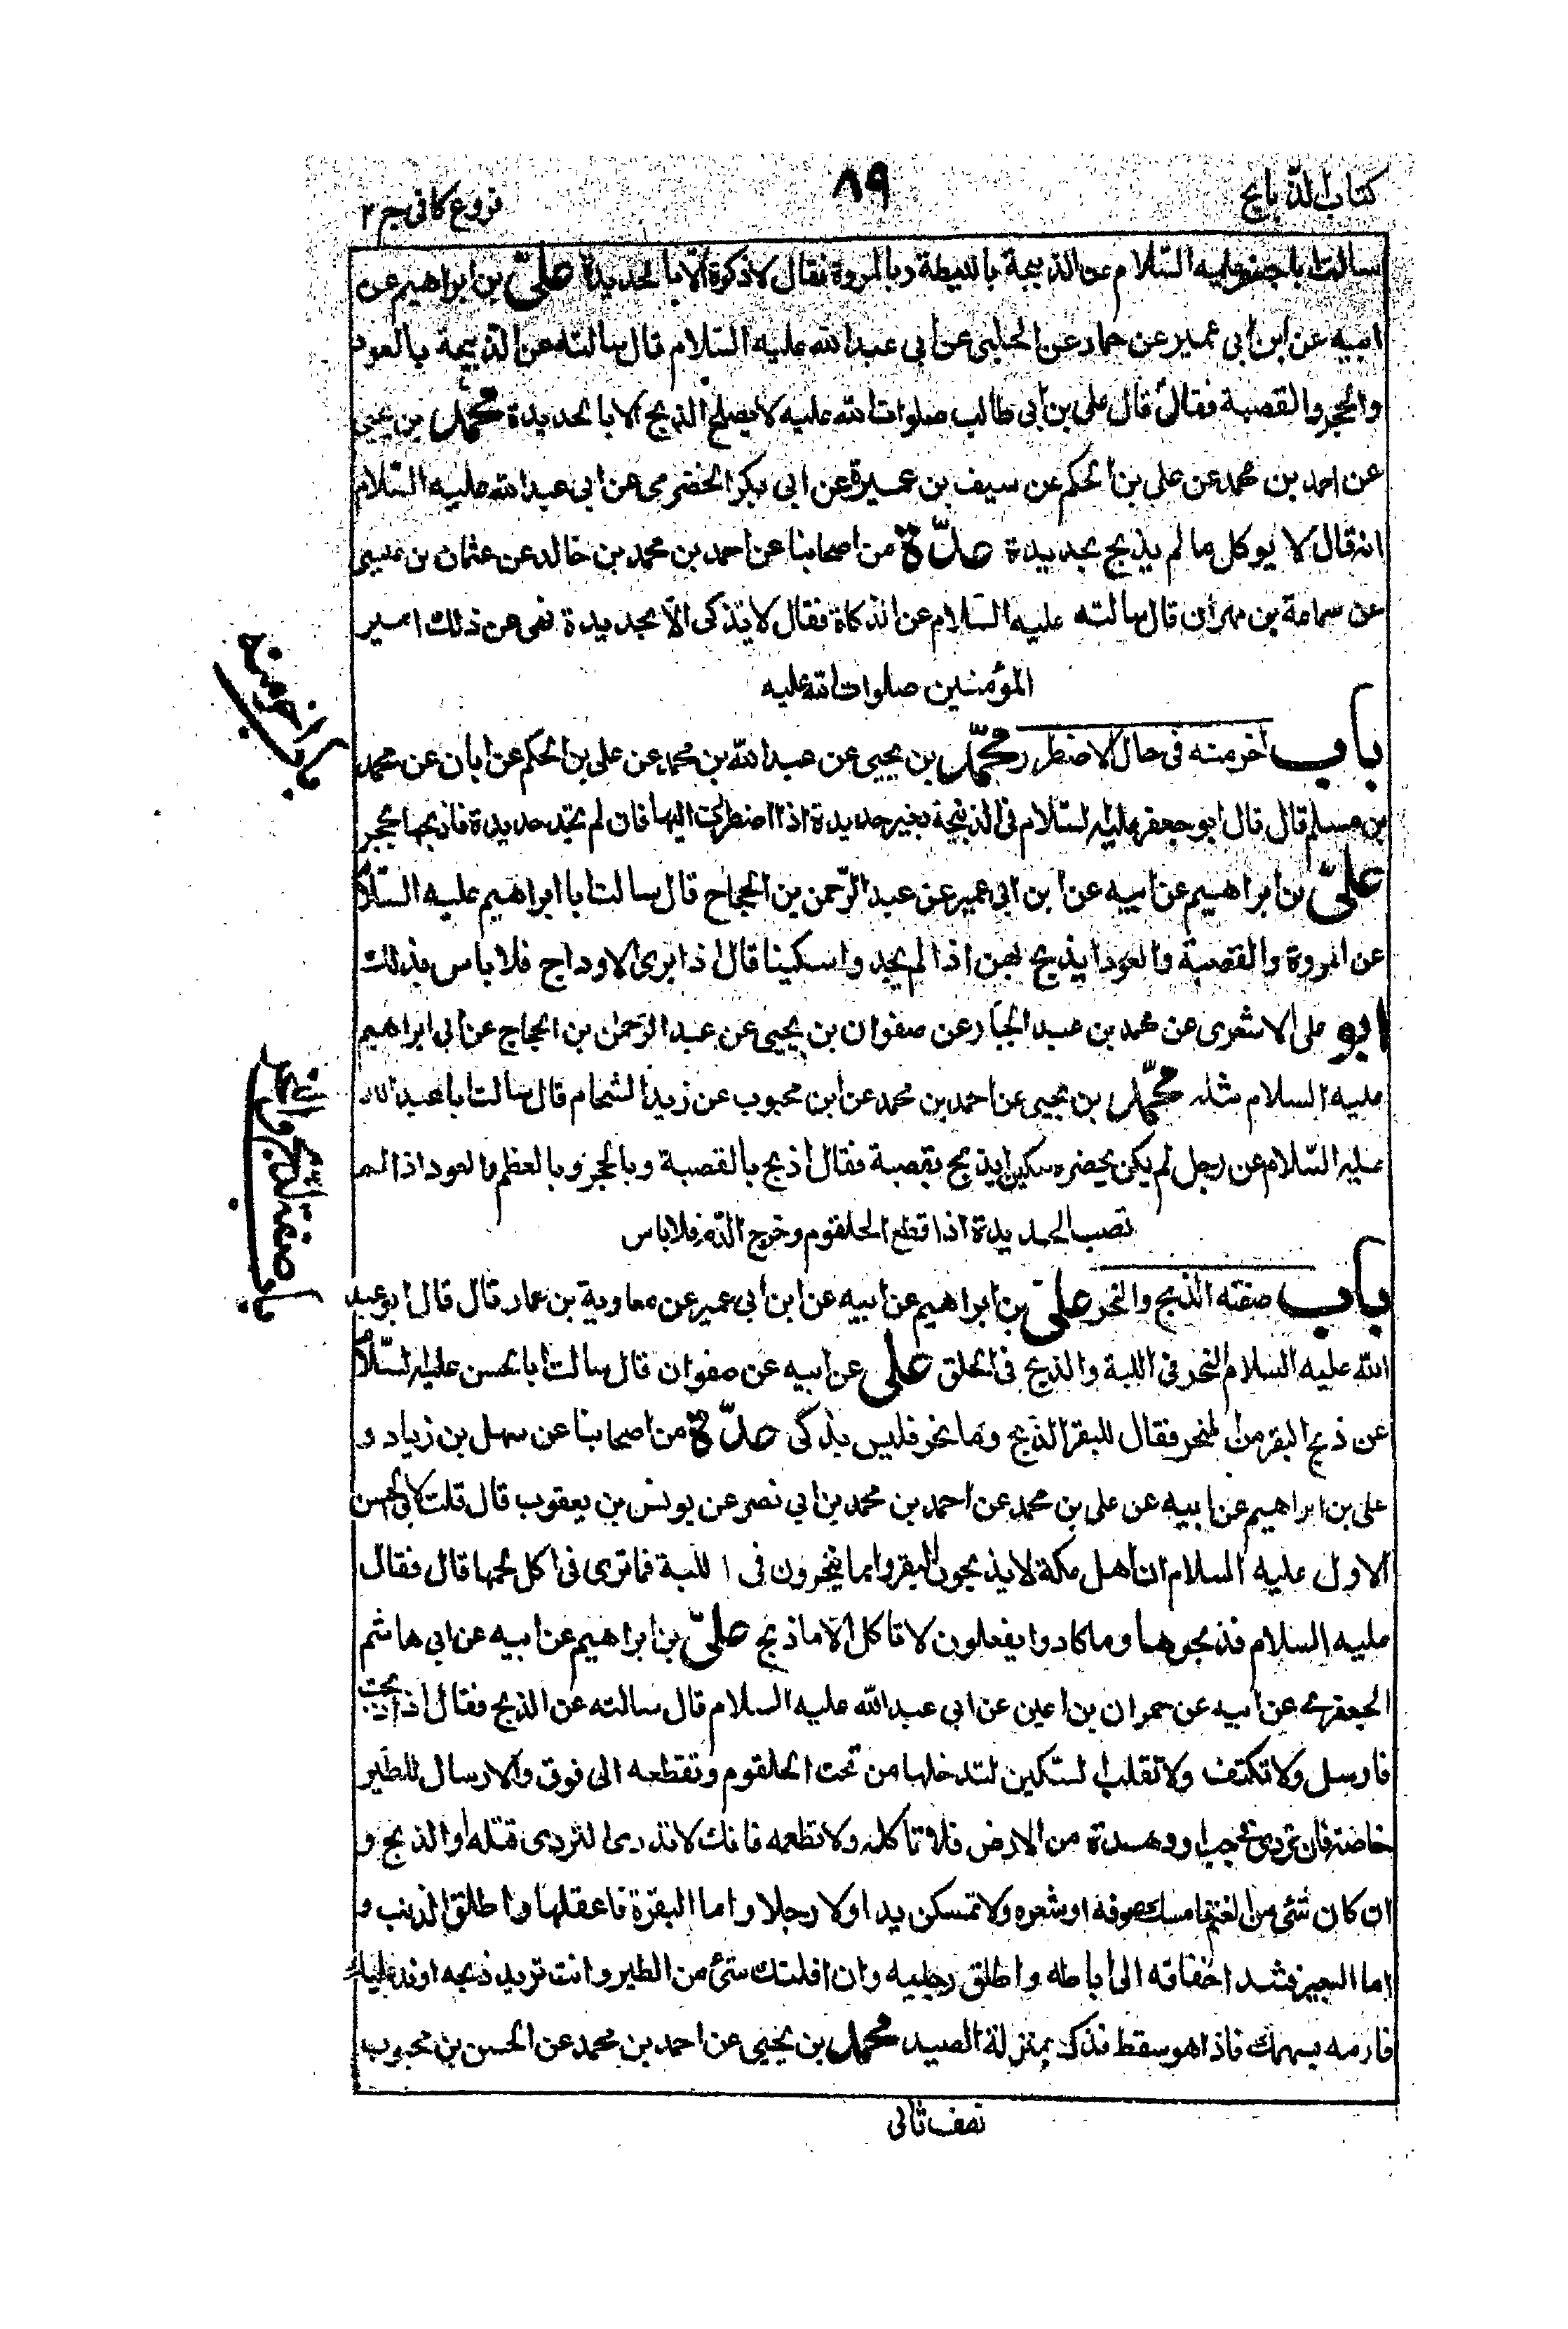 كتاب الذبايح
٨٩
فروع كافى ج ٢
سالت اباجعفر عليه السّلام عن الذبيحة بالليطة وبالمروة فقال لا ذكوة الّا بالحديدة علىّ بن ابراهيم عن
ابيه عن ابن ابى عمير عن حماد عن الحلبى عن ابى عبد الله عليه السّلام قال سالته عن الذبيحة بالعود
والحجر والقصبة فقال قال على بن ابى طالب صلوات الله عليه لا يصلح الذبح الا بالحديدة محمّد بن يحيى
عن احمد بن محمد عن على بن الحكم عن سيف بن عميرة عن ابى بكر الحضرمى عن ابى عبد الله عليه السّلام
انه قال لا يوكل ما لم يذبح بحديدة عدّة من اصحابنا عن احمد بن محمد بن خالد عن عثمان بن عيسى
عن سماعة بن مهران قال سالته عليه السّلام عن الذكاة فقال لا يذكى الّا بحديدة نهى عن ذلك امير
المؤمنين صلوات الله عليه
باب اخر منه فى حال الاضطرر محمّد بن يحيى عن عبد الله بن محمد عن على بن الحكم عن ابان عن محمد
بن مسلم قال قال ابو جعفر عليه السّلام فى الذبيحة بغير حديدة اذا اضطررت اليها فان لم تجد حديدة فاذبحها بحجر
علىّ بن ابراهيم عن ابيه عن ابن ابى عمير عن عبد الرّحمن بن الحجاج قال سالت ابا ابراهيم عليه السّلام
عن المروة والقصبة والعود ايذبح بهن اذا لم يجدوا سكينا قال اذا برى الاوداج فلا باس بذلك
ابو على الاشعرى عن محمد بن عبد الجبّار عن صفوان بن يحيى عن عبد الرّحمن بن الحجاج عن ابى ابراهيم
عليه السلام مثله محمّد بن يحيى عن احمد بن محمد عن ابن محبوب عن زيد الشحام قال سالت ابا عبد الله
عليه السّلام عن رجل لم يكن يحضره سكين ايذبح بقصبة فقال اذبح بالقصبة وبالحجر وبالعظم والعود اذا لم
تصب الحديدة اذا قطع الحلقوم وخرج الدّم فلا باس
باب صفته الذبح والنحر علىّ بن ابراهيم عن ابيه عن ابن ابى عمير عن معاوية بن عمار قال قال ابو عبد
الله عليه السلام النحر فى اللبة والذبح فى الحلق على عن ابيه عن صفوان قال سالت ابا الحسن عليه السّلام
عن ذبح البقر من المنحر فقال للبقر الذبح وما نحر فليس بذكى عدّة من اصحابنا عن سهل بن زياد و
على بن ابراهيم عن ابيه عن على بن محمد عن احمد بن محمد بن ابى نصر عن يونس بن يعقوب قال قلت لابى الحسن
الاول عليه السلام ان اهل مكة لا يذبحون البقر وانما ينحرون فى اللبة فما ترى فى اكل لحمها قال فقال
عليه السلام فذبحوها وما كادوا يفعلون لا تاكل الّا ما ذبح علىّ بن ابراهيم عن ابيه عن ابى هاشم
الجعفرى عن ابيه عن حمران بن اعين عن ابى عبد الله عليه السلام قال سالته عن الذبح فقال اذا ذبحت
فارسل ولا تكتف ولا تقلب السّكين لتدخلها من تحت الحلقوم وتقطعه الى فوق والارسال للطير
خاصّة فان تردى فى جب او وهدة من الارض فلا تاكله ولا تطعمه فانك لا تدرى التردى قتله او الذبح و
ان كان شئ من الغنم فامسك صوفه او شعره ولا تمسكن يدا ولا رجلا واما البقرة فاعقلها واطلق الذنب و
اما البعير فشد اخفافه الى اباطه واطلق رجليه وان افلتك شئ من الطير وانت تريد ذبحه او ند عليك
فارمه بسهمك فاذا هو سقط فذكه بمنزلة الصيد محمّد بن يحيى عن احمد بن محمد عن الحسن بن محبوب
باب اخر منه
باب صفة الذبح والنحر
نصف ثانى